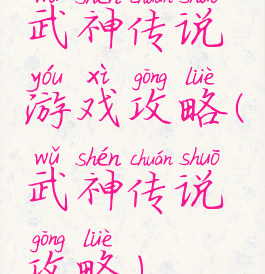 wǔ shén chuán shuō
武神传说
yóu xì gōng lüè
游戏攻略(
wǔ shén chuán shuō
武神传说
gōng lüè
攻略)